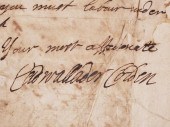 you must
Your most affectionate
Cadwallader Colden